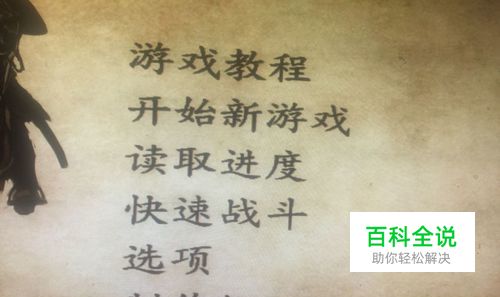 游戏教程
开始新游戏
读取进度
快速战斗
选项
百科全说
助你轻松解决